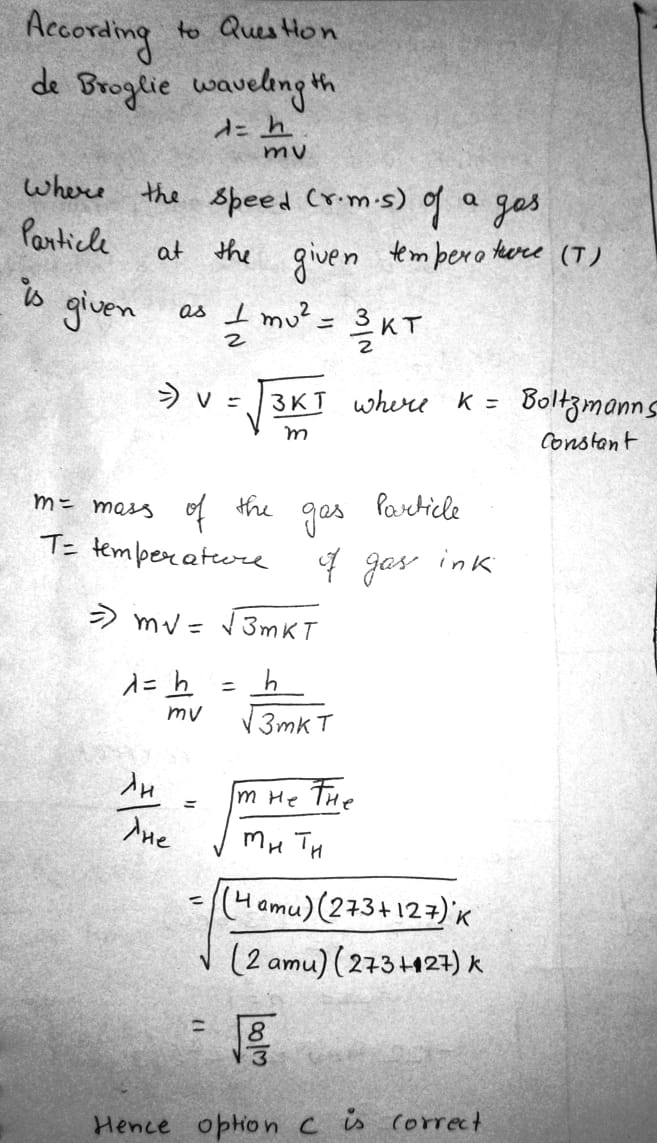 According to Question
de Broglie wavelength
λ = h/mv
where the speed (r.m.s) of a gas
Particle at the given temperature (T)
is given as 1/2 mv² = 3/2 KT
⇒ v = √(3KT/m) where K = Boltzmanns
Constant
m = mass of the gas Particle
T = temperature of gas in K
⇒ mv = √3mKT
λ = h/mv = h/√3mKT
λH/λHe = √(m He THe / mH TH)
= √((4 amu)(273+127)°K / (2 amu)(273+127) k)
= √(8/3)
Hence option c is correct